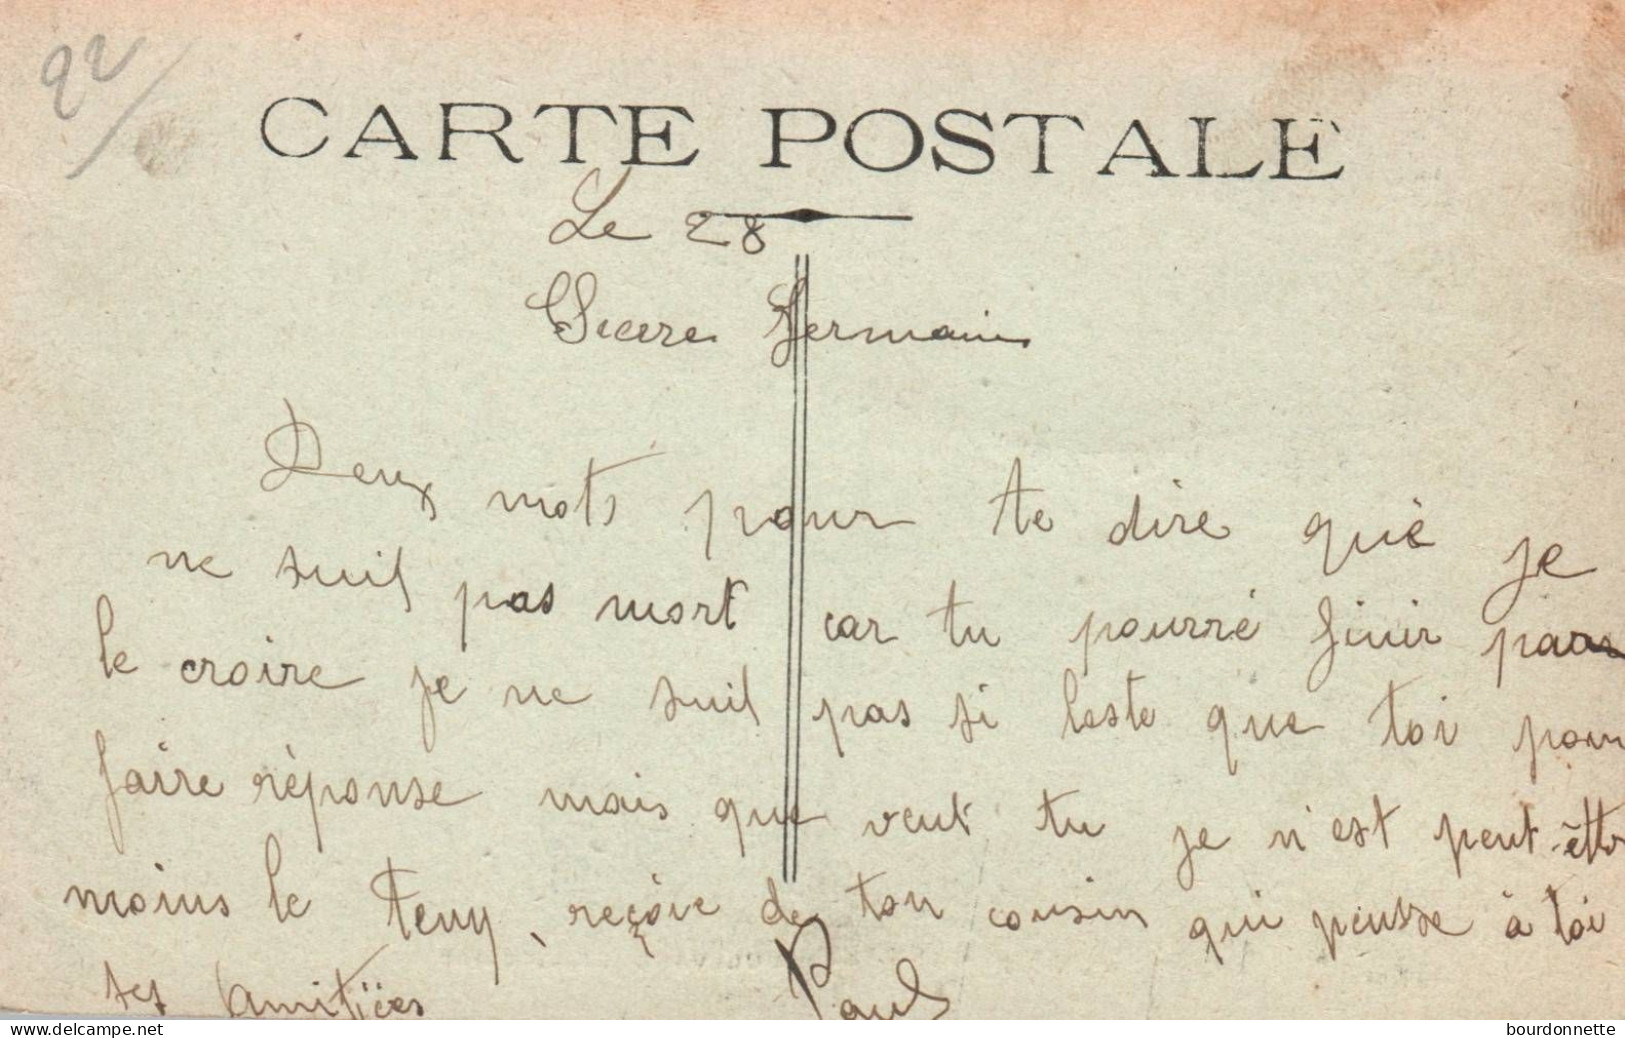 22/
CARTE POSTALE
Le 28
Germain
Deux mots pour te dire què je
ne suil pas mort car tu pourré finir par
le croire je ne suil pas si leste que toi pour
faire réponse mais que veut tu je n'est peut-être
moins le temp, reçoie de ton cousin qui pensse à toi
ses amitiées Paul
www.delcampe.net
bourdonnette